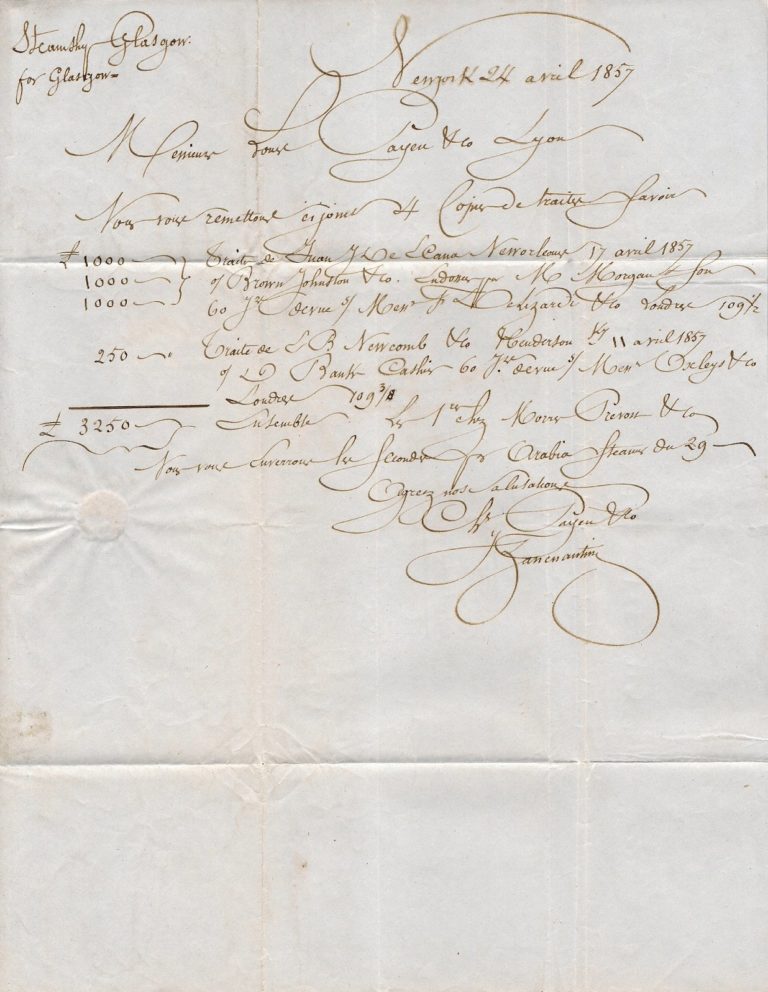 Steamship Glasgow.
for Glasgow=
Newyork 24 avril 1857
Messieurs Louis Payen & co Lyon
Nous vous remettons cijoint 4 Copies de traites Savoir
£ 1000 Traite de Juan Y de Neworleans 17 avril 1857
1000 s/ Brown Johnston & co. Endossée p M. Morgan & Son
1000 60 Jrs de vue s/ Mess F de Lizardi & co Londres 109 1/2
250 " Traite de B Newcomb & co Henderson Ky 11 avril 1857
s/ Bank Cashier 60 Jrs de vue s/ Mess Oxleys & co
Londres 109 3/8
£ 3250 Ensemble Les 1res chez Morris Prevost & co
Nous vous enverrons les Secondes pr Arabia Steamer du 29
Agreez nos Salutations
Chs Payen & co